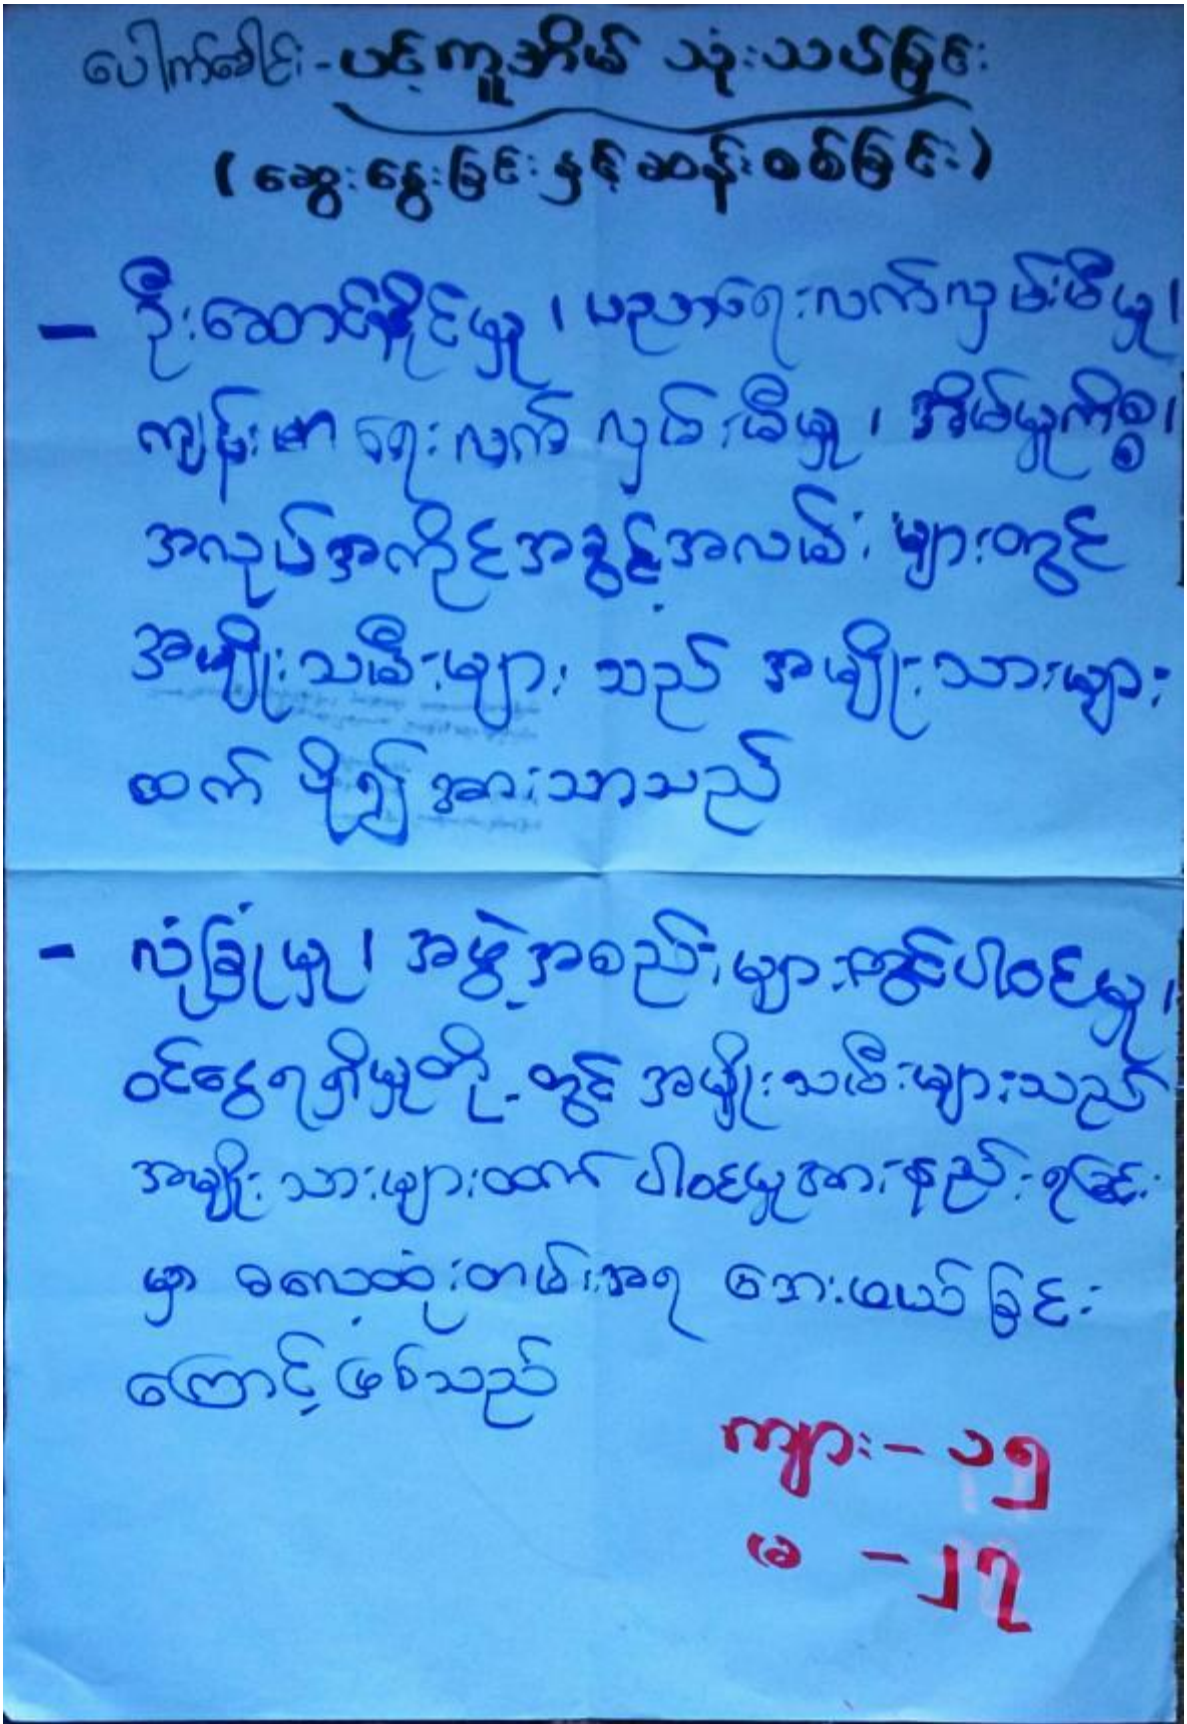 ပေါက်ခေါင်း - ပင့်ကူအိမ် သုံးသပ်ခြင်း
( ဆွေးနွေးခြင်းနှင့် ဆန်းစစ်ခြင်း )
- ဦးဆောင်နိုင်မှု၊ ပညာရေးလက်လှမ်းမီမှု၊
ကျန်းမာရေးလက်လှမ်းမီမှု၊ အိမ်မှုကိစ္စ၊
အလုပ်အကိုင်အခွင့်အလမ်းများတွင်
အမျိုးသမီးများသည် အမျိုးသားများ
ထက် ပို၍အားသာသည်
- လုံခြုံမှု၊ အဖွဲ့အစည်းများတွင်ပါဝင်မှု၊
ဝင်ငွေရရှိမှုတို့တွင် အမျိုးသမီးများသည်
အမျိုးသားများထက် ပါဝင်မှုအားနည်းရခြင်း
မှာ ဓလေ့ထုံးတမ်းအရ ဘေးဖယ်ခြင်း
ကြောင့်ဖြစ်သည်
ကျား - ၁၅
မ - ၂၇